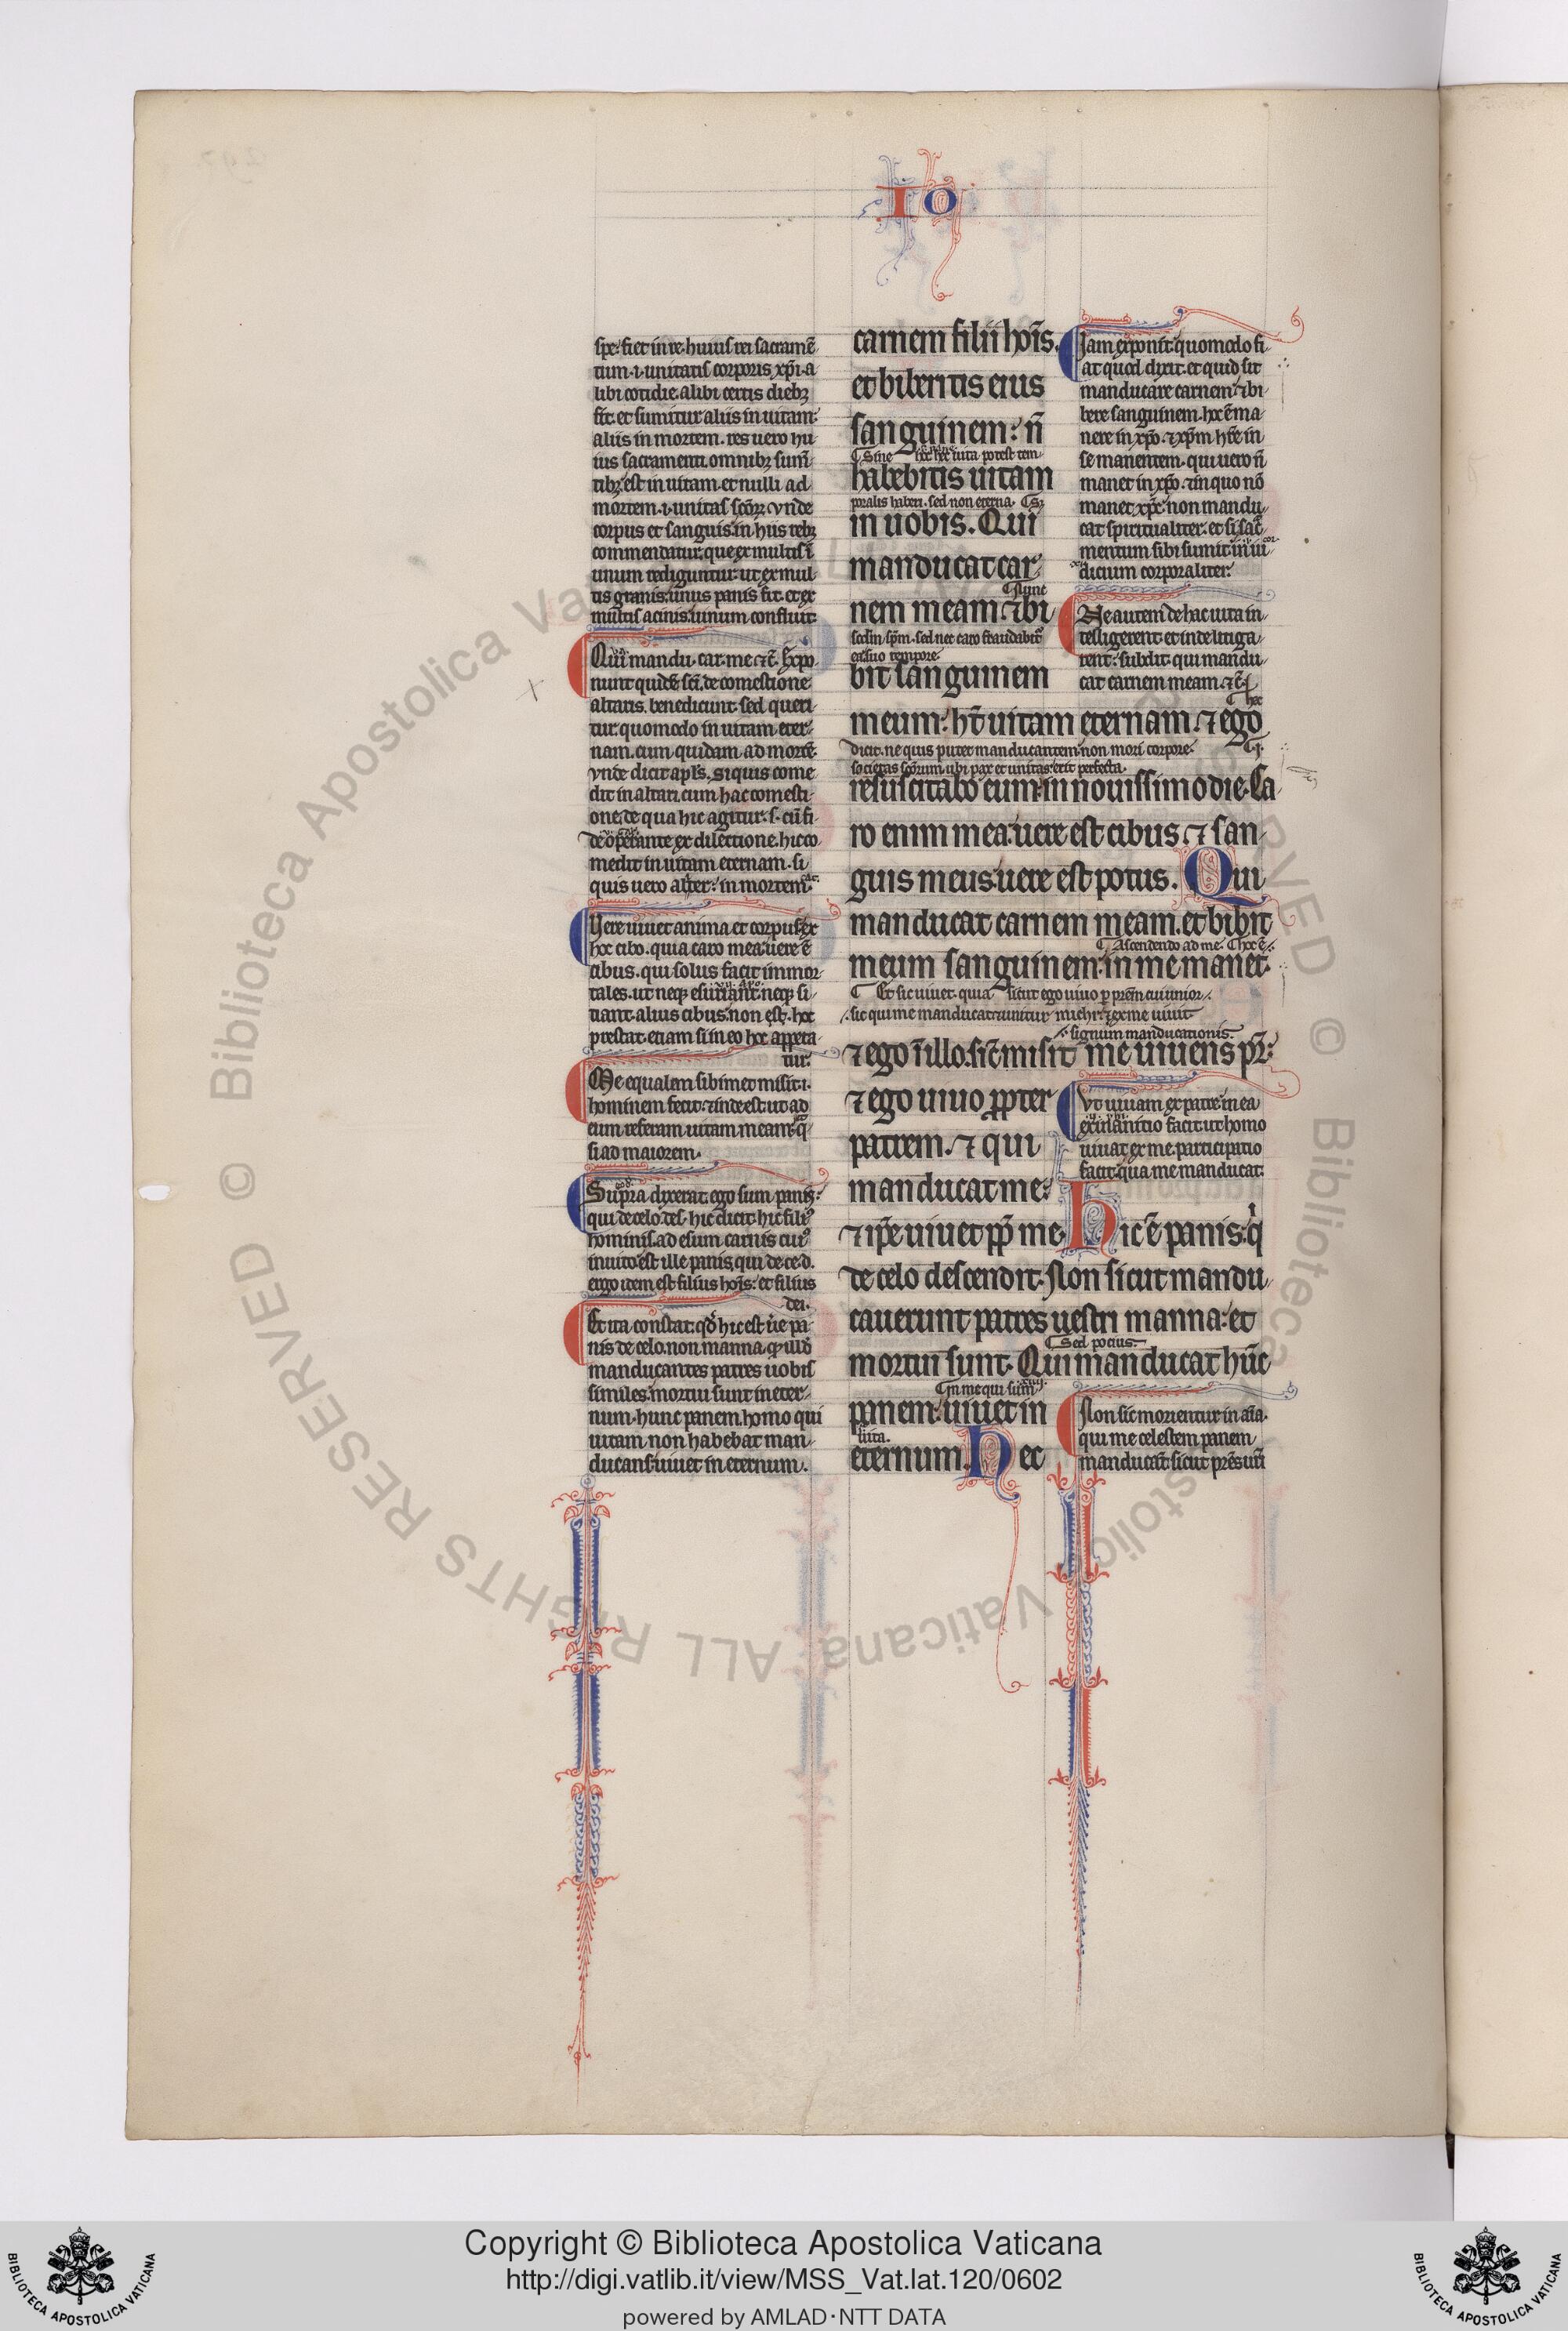 IO
spe. fiet in re. huius rei sacramē
tum .i. unitatis corporis xp̄i. a
libi cotidie. alibi certis diebꝫ
fit. et sumitur aliis in uitam.
aliis in mortem. res uero hu
ius sacramenti omnibꝫ sum̄
tibꝫ est in uitam. et nulli ad
mortem .i. unitas scōꝝ. vnde
corpus et sanguis. in hiis rebꝫ
commendatur. que ex multis ī
unum rediguntur. ut ex mul
tis granis. unus panis fit. et ex
multis acinis. uinum confluit.
Qui mandu. car. me. ⁊c̄. Expo
nunt quidē sc̄i. de comestione
altaris. benedicunt. sed queri
tur. quomodo in uitam eter
nam. cum quidam ad mortē.
vnde dicit apl̄s. si quis come
dit in altari. cum hac comesti
one. de qua hic agitur. s. cū fi
de operante ex dilectione. hic co
medit in uitam eternam. si
quis uero aliter. in mortem.
Vere uiuet anima et corpus. ex
hoc cibo. quia caro mea. uere ē
cibus. qui solus facit immor
tales. ut neqꝫ esuriant. neqꝫ si
tiant. alius cibus. non est. hoc
prestat. etiam si in eo hoc appeta
tur.
Me equalem sibimet misit .i.
hominem fecit. ⁊ inde est. ut ad
eum referam uitam meam. q̄
si ad maiorem.
Supra dixerat. ego sum panis.
qui de celo des. hic dicit. hic filiꝰ
hominis. ad esum carnis cuiꝰ
inuito. est ille panis. qui de ce. d.
ergo idem est filius hoīs. et filius
dei.
Et ita constat. qd̄ hic est ūe pa
nis de celo. non manna. qr̄ illd̄
manducantes patres uobis
similes. mortui sunt in eter
num. hunc panem. homo qui
uitam non habebat man
ducans. uiuet in eternum.
carnem filii hoīs.
et biberitis eius
sanguinem. n̄
Sine hoc hec uita potest tem
habebitis uitam
poralis haberi. sed non eterna.
in uobis. Qui
manducat car
nem meam. ⁊ bi
sedm sp̄m. sed nec caro fraudabit̄
ea suo tempore.
bit sanguinem
meum. hꝫ uitam eternam. ⁊ ego
dicit. ne quis putet manducantem non mori corpore.
societas scōrum. ubi pax et unitas. erit perfecta.
resuscitabo eum. in nouissimo die. Ca
ro enim mea. uere est cibus. ⁊ san
guis meus. uere est potus. Qui
manducat carnem meam. et bibit
Ascendendo ad me. hoc ē.
meum sanguinem. in me manet.
Et sic uiuet. quia sicut ego uiuo ꝑ prēm cui unior.
sic qui me manducat ⁊ unitur michi. ⁊ ex me uiuit
signum manducationis.
⁊ ego ī illo. sic̄ misit me uiuens pr̄.
⁊ ego uiuo ꝓpter
patrem. ⁊ qui
manducat me.
⁊ ip̄e uiuet pp̄ me. Hic ē panis. q̄
de celo descendit. Non sicut mandu
cauerunt patres uestri manna. et
Sed pocius.
mortui sunt. Qui manducat hūc
In me qui sum
panem. uiuet in
uita.
eternum. Hec
Iam exponit. quomodo fi
at quod dixit. et quid sit
manducare carnem. ⁊ bi
bere sanguinem. hoc ē ma
nere in xp̄o. ⁊ xp̄m hr̄e in
se manentem. qui uero n̄
manet in xp̄o. ⁊ in quo nō
manet xp̄c. non mandu
cat spiritualiter. et si sac̄
mentum sibi sumit in iu
dicium corporaliter.
Ne autem de hac uita in
telligerent. et inde litiga
rent. subdit. qui mandu
cat carnem meam. ⁊c̄.
hoc
Vt uiuam ex patre. mea
exinanitio facit. ut homo
uiuat ex me. participatio
facit. qua me manducat.
Non sic morientur in aīa.
qui me celestem panem
manducāt. sicut prēs ur̄i
Copyright © Biblioteca Apostolica Vaticana
http://digi.vatlib.it/view/MSS_Vat.lat.120/0602
powered by AMLAD·NTT DATA
BIBLIOTECA APOSTOLICA VATICANA
BIBLIOTECA APOSTOLICA VATICANA
© Biblioteca Apostolica Vaticana ALL RIGHTS RESERVED
© Biblioteca Apostolica Vaticana ALL RIGHTS RESERVED